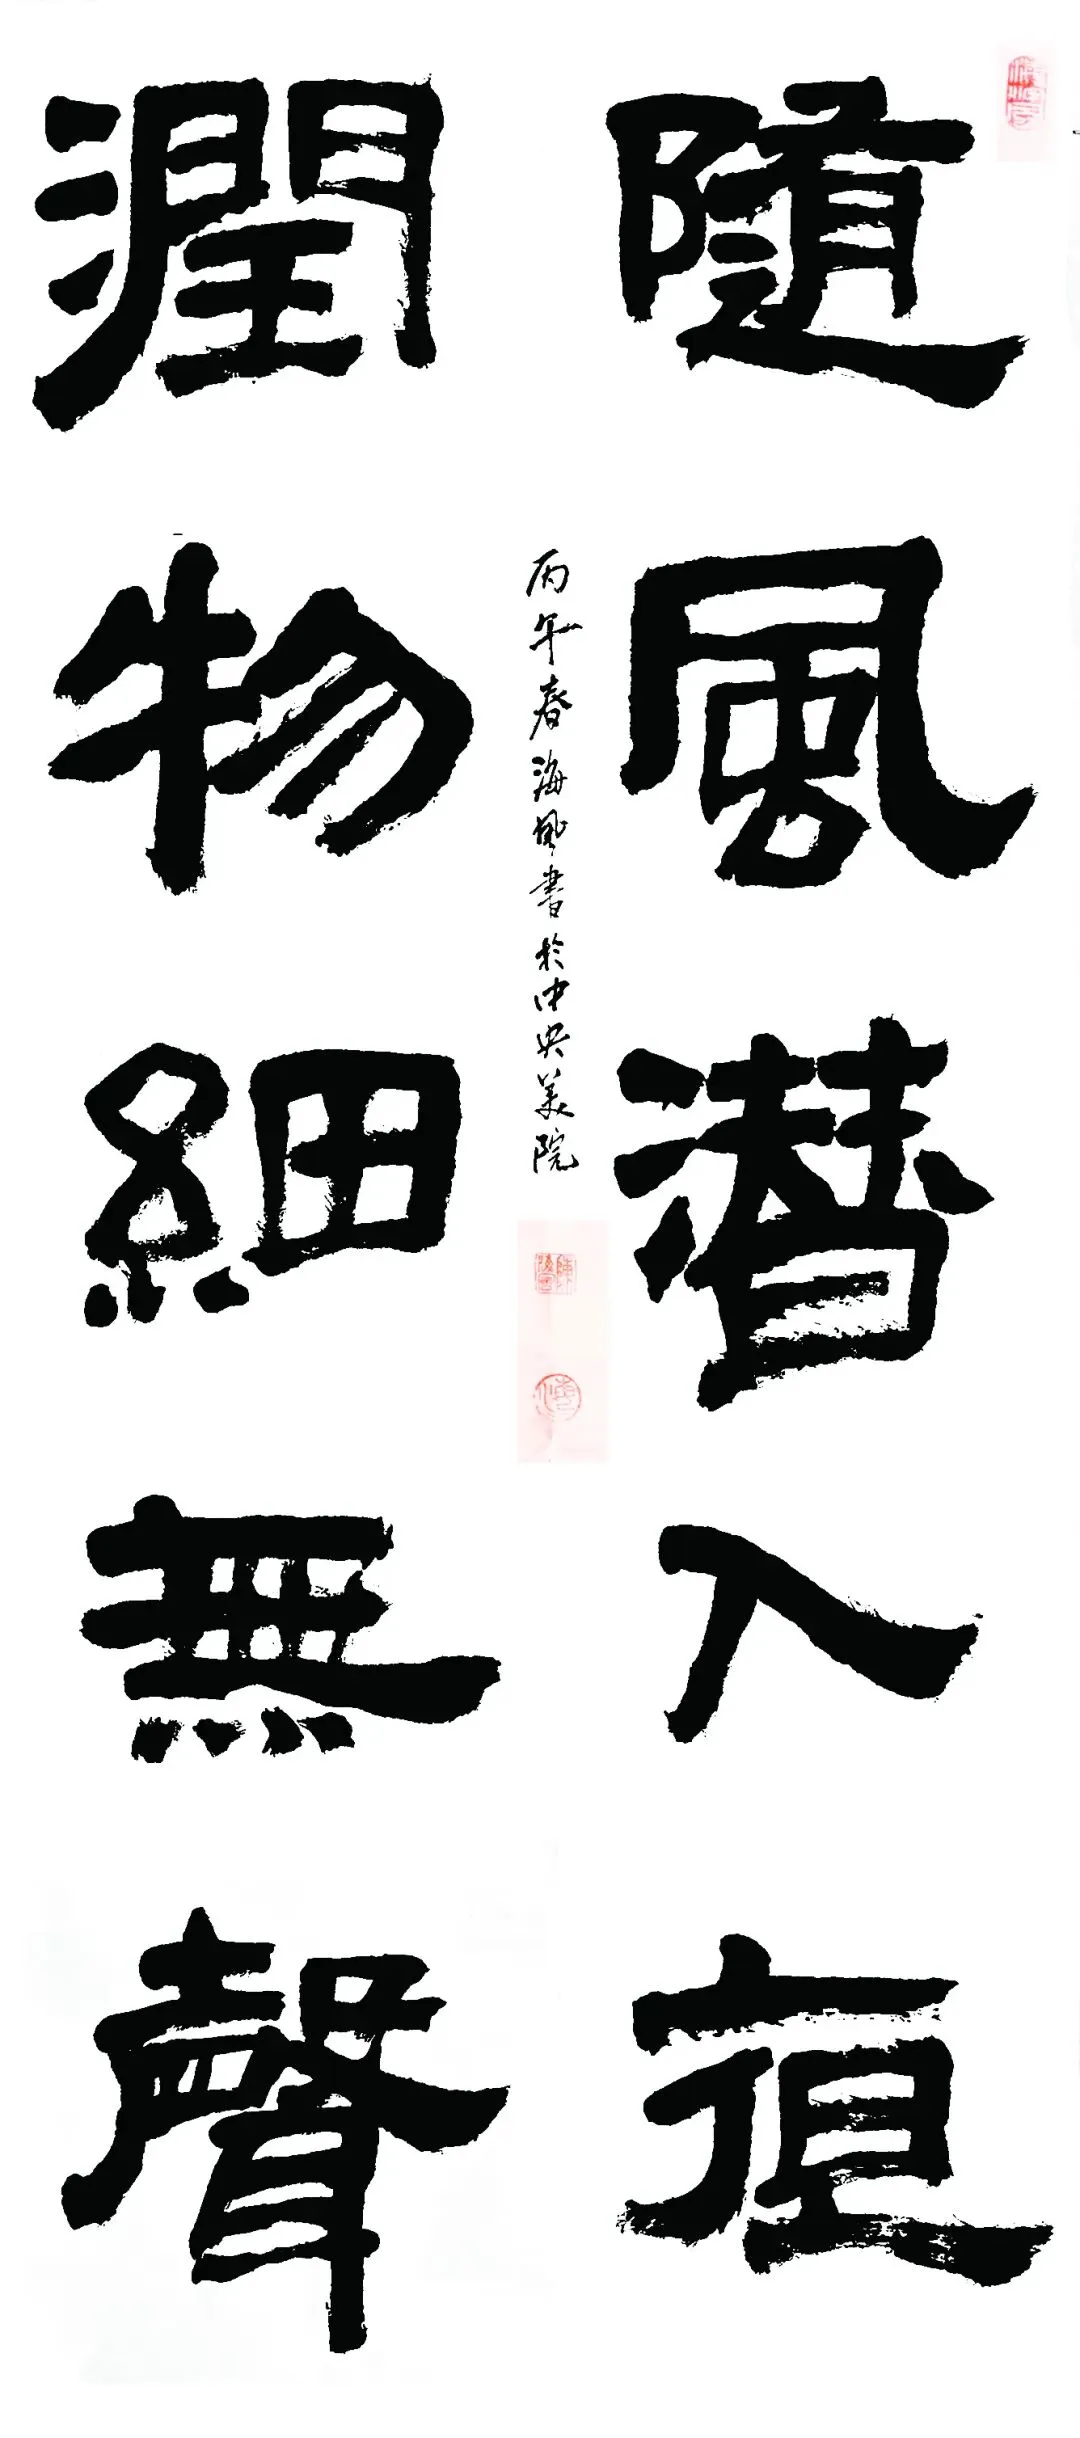 随風潜入亱
潤物細無聲
丙午春海風書於中央美院